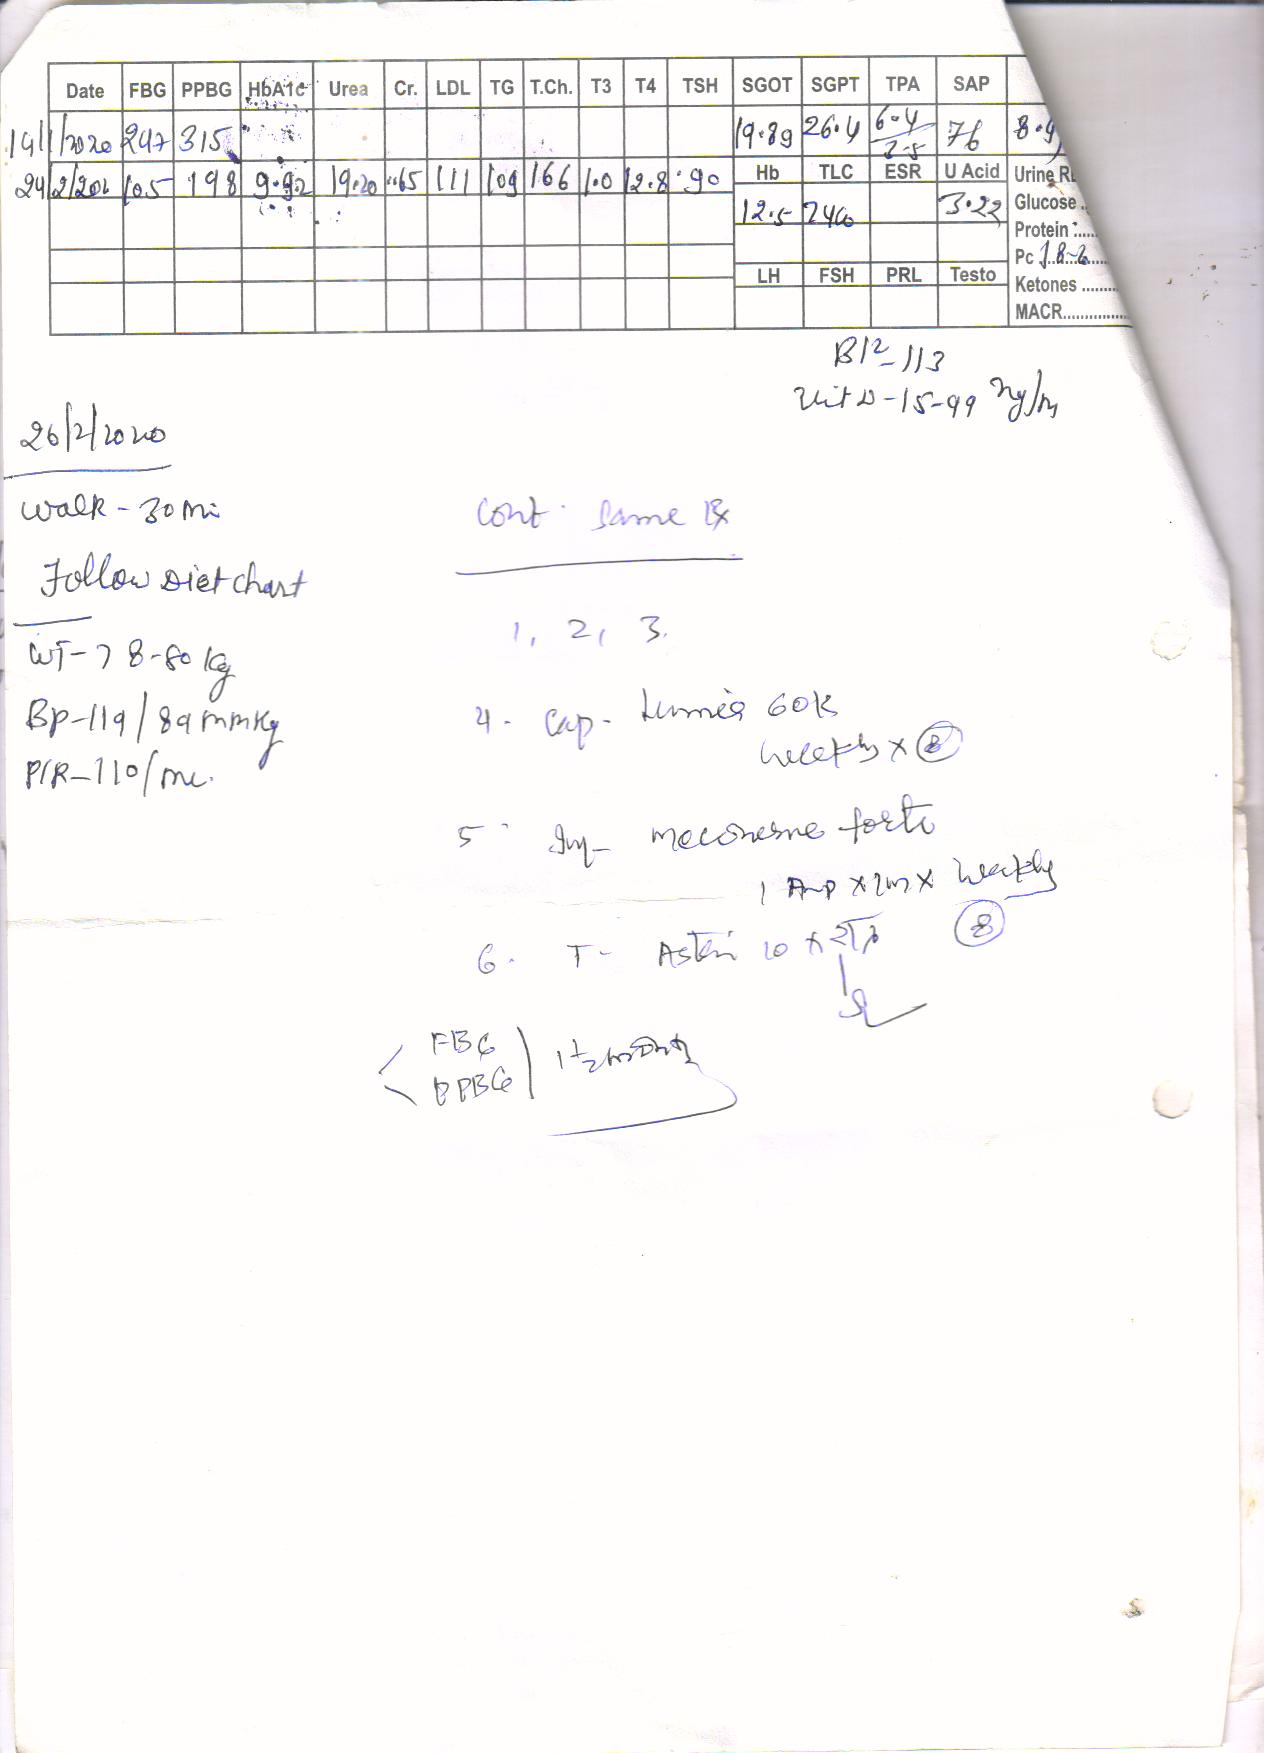 Date FBG PPBG HbA1c Urea Cr. LDL TG T.Ch. T3 T4 TSH SGOT SGPT TPA SAP
247 315 19.89 26.4 6.4 76
105 198 9.92 19.20 .65 111 109 166 1.0 12.8 .90
Hb TLC ESR U Acid Urine
12.5 3.22 Glucose
Protein :.....
Pc 1.8-2
LH FSH PRL Testo
Ketones .........
MACR...............
B12-113
Vit D-15-99
26/2/2020
Walk - 30 Mi
Cont. Same Rx
Follow Diet Chart
1, 2, 3.
WT-78-80 Kg
4. Cap- 60K
Weekly x 8
BP-119/89 mmHg
P/R-110/
5. Inj- forte
1 Amp x x Weekly
8
6. T- 10 x
FBG
PPBG